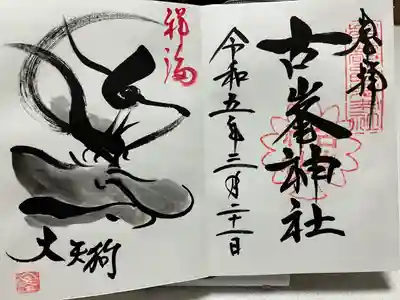 奉拝
古峯神社
令和五年二月二十一日
祥福
大天狗